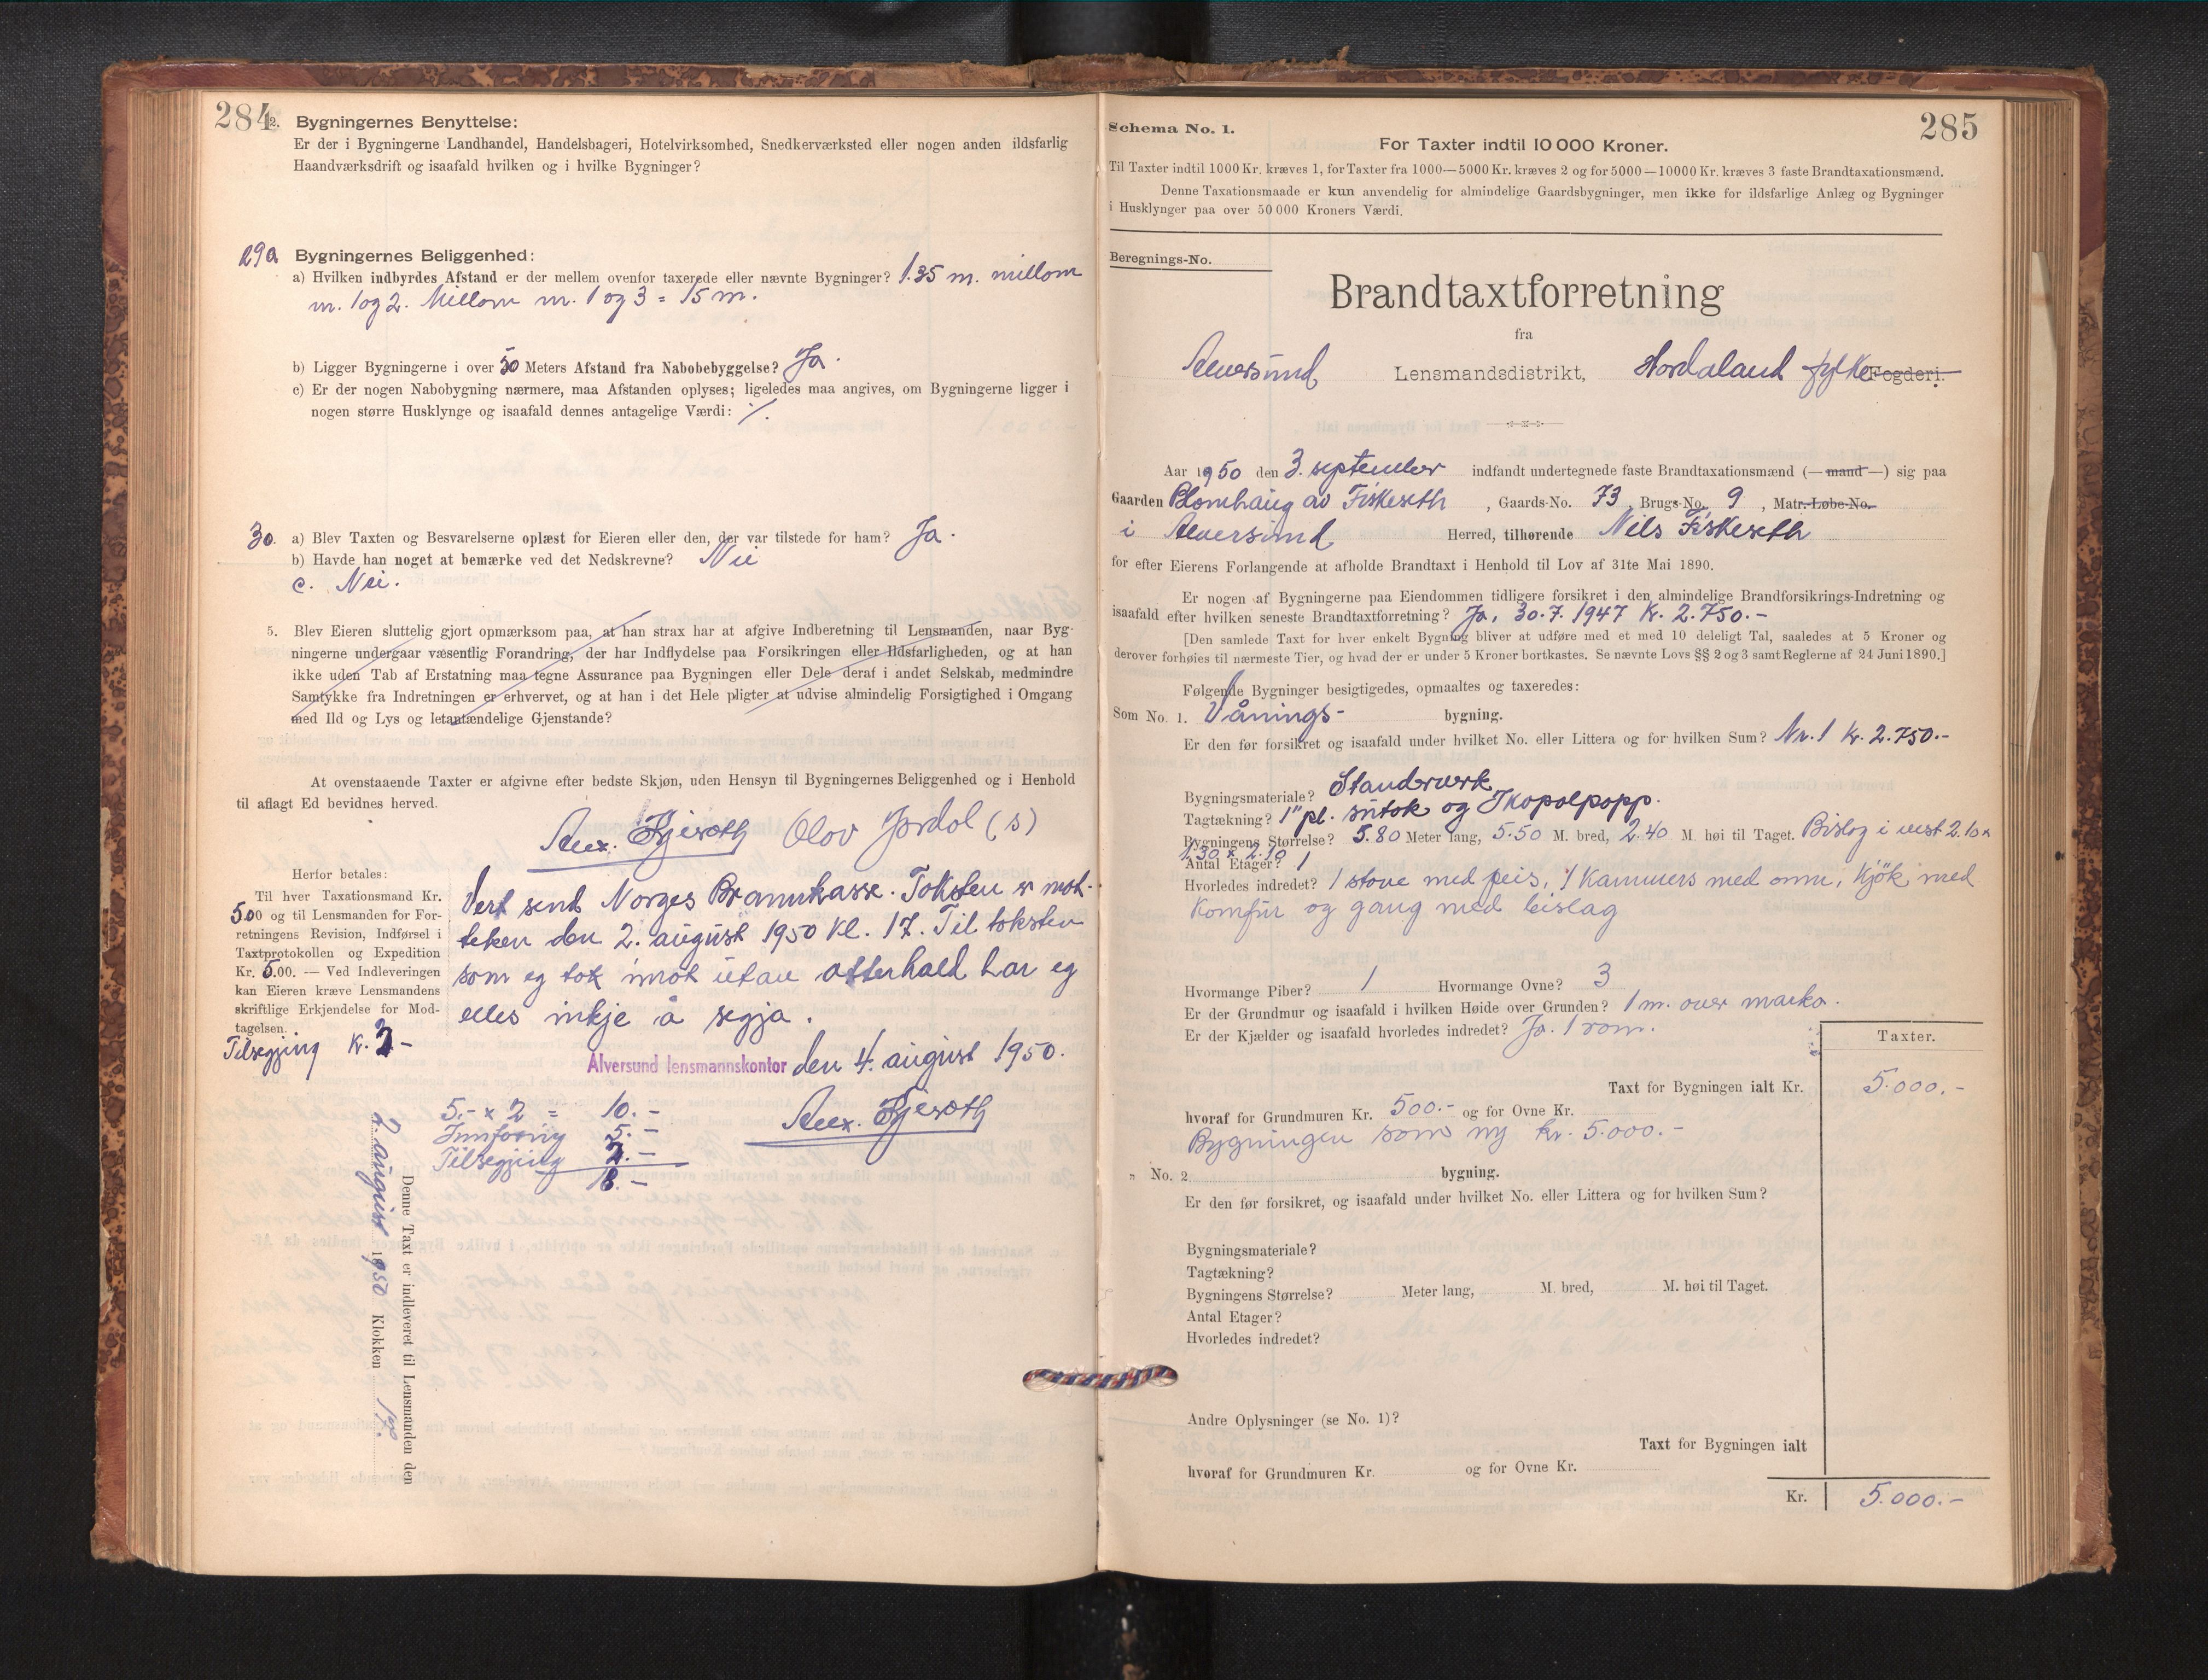 284
2. Bygningernes Benyttelse:
Er der i Bygningerne Landhandel, Handelsbageri, Hotelvirksomhed, Snedkerværksted eller nogen anden ildsfarlig
Haandværksdrift og isaafald hvilken og i hvilke Bygninger?
29a Bygningernes Beliggenhed:
a) Hvilken indbyrdes Afstand er der mellem ovenfor taxerede eller nævnte Bygninger? 1.35 m. millom
m. 1 og 2. Millom m. 1 og 3 = 15 m.
b) Ligger Bygningerne i over 50 Meters Afstand fra Nabobebyggelse? Ja.
c) Er der nogen Nabobygning nærmere, maa Afstanden oplyses; ligeledes maa angives, om Bygningerne ligger i
nogen større Husklynge og isaafald dennes antagelige Værdi: ./.
30. a) Blev Taxten og Besvarelserne oplæst for Eieren eller den, der var tilstede for ham? Ja.
b) Havde han noget at bemærke ved det Nedskrevne? Nei
c. Nei.
5. Blev Eieren sluttelig gjort opmærksom paa, at han strax har at afgive Indberetning til Lensmanden, naar Byg-
ningerne undergaar væsentlig Forandring, der har Indflydelse paa Forsikringen eller Ildsfarligheden, og at han
ikke uden Tab af Erstatning maa tegne Assurance paa Bygningen eller Dele deraf i andet Selskab, medmindre
Samtykke fra Indretningen er erhvervet, og at han i det Hele pligter at udvise almindelig Forsigtighed i Omgang
med Ild og Lys og letantændelige Gjenstande?
At ovenstaaende Taxter er afgivne efter bedste Skjøn, uden Hensyn til Bygningernes Beliggenhed og i Henhold
til aflagt Ed bevidnes herved.
Alex. Olov Jordol (s)
Herfor betales:
Til hver Taxationsmand Kr.
5.00 og til Lensmanden for For-
retningens Revision, Indførsel i
Taxtprotokollen og Expedition
Kr. 5.00. — Ved Indleveringen
kan Eieren kræve Lensmandens
skriftlige Erkjendelse for Mod-
tagelsen.
Tilsegjing kr. 3-
Vert send Norges Brannkasse. Taksten er mot-
teken den 2. august 1950 kl. 17. Til taksten
som eg tok imot utan atterhald har eg
elles inkje å segja.
Alversund lensmannskontor den 4. august 1950.
Alex.
5.- x 2 = 10.-
Innføring 5.-
Tilsegjing 3.-
18.-
Denne Taxt er indleveret til Lensmanden den
2. august 1950 Klokken 17.
285
Schema No. 1.
For Taxter indtil 10 000 Kroner.
Til Taxter indtil 1000 Kr. kræves 1, for Taxter fra 1000—5000 Kr. kræves 2 og for 5000—10000 Kr. kræves 3 faste Brandtaxationsmænd.
Denne Taxationsmaade er kun anvendelig for almindelige Gaardsbygninger, men ikke for ildsfarlige Anlæg og Bygninger
i Husklynger paa over 50 000 Kroners Værdi.
Beregnings-No.
Brandtaxtforretning
fra
Alversund Lensmandsdistrikt, Hordaland fylke Fogderi.
Aar 1950 den 3. september indfandt undertegnede faste Brandtaxationsmænd (—mand—) sig paa
Gaarden Blomhaug av Fiskeseth, Gaards-No. 73, Brugs-No. 9, Matr.-Løbe-No.
i Alversund Herred, tilhørende Nils Fiskeseth
for efter Eierens Forlangende at afholde Brandtaxt i Henhold til Lov af 31te Mai 1890.
Er nogen af Bygningerne paa Eiendommen tidligere forsikret i den almindelige Brandforsikrings-Indretning og
isaafald efter hvilken seneste Brandtaxtforretning? Ja, 30.7.1947 kr. 2.750.-
[Den samlede Taxt for hver enkelt Bygning bliver at udføre med et med 10 deleligt Tal, saaledes at 5 Kroner og
derover forhøies til nærmeste Tier, og hvad der er under 5 Kroner bortkastes. Se nævnte Lovs §§ 2 og 3 samt Reglerne af 24 Juni 1890.]
Følgende Bygninger besigtigedes, opmaaltes og taxeredes:
Som No. 1. Vånings- bygning.
Er den før forsikret og isaafald under hvilket No. eller Littera og for hvilken Sum? Nr. 1 kr. 2.750.-
Bygningsmateriale? Standverk
Tagtækning? 1" pl. sutak og Ikopolpapp.
Bygningens Størrelse? 5.80 Meter lang, 5.50 M. bred, 2.40 M. høi til Taget. Bislag i vest 2.10 x
1.30 x 2.10
Antal Etager? 1
Hvorledes indredet? 1 stove med peis, 1 kammers med omn, kjök med
komfur og gang med bislag
Hvormange Piber? 1 Hvormange Ovne? 3
Er der Grundmur og isaafald i hvilken Høide over Grunden? 1 m. over marka.
Er der Kjælder og isaafald hvorledes indredet? Ja. 1 rom.
Taxter.
Taxt for Bygningen ialt Kr. 5.000.-
hvoraf for Grundmuren Kr. 500.- og for Ovne Kr.
Bygningen som ny kr. 5.000.-
" No. 2 bygning.
Er den før forsikret, og isaafald under hvilket No. eller Littera og for hvilken Sum?
Bygningsmateriale?
Tagtækning?
Bygningens Størrelse? Meter lang, M. bred, M. høi til Taget.
Antal Etager?
Hvorledes indredet?
Andre Oplysninger (se No. 1)?
Taxt for Bygningen ialt
hvoraf for Grundmuren Kr. og for Ovne Kr.
Kr. 5.000.-